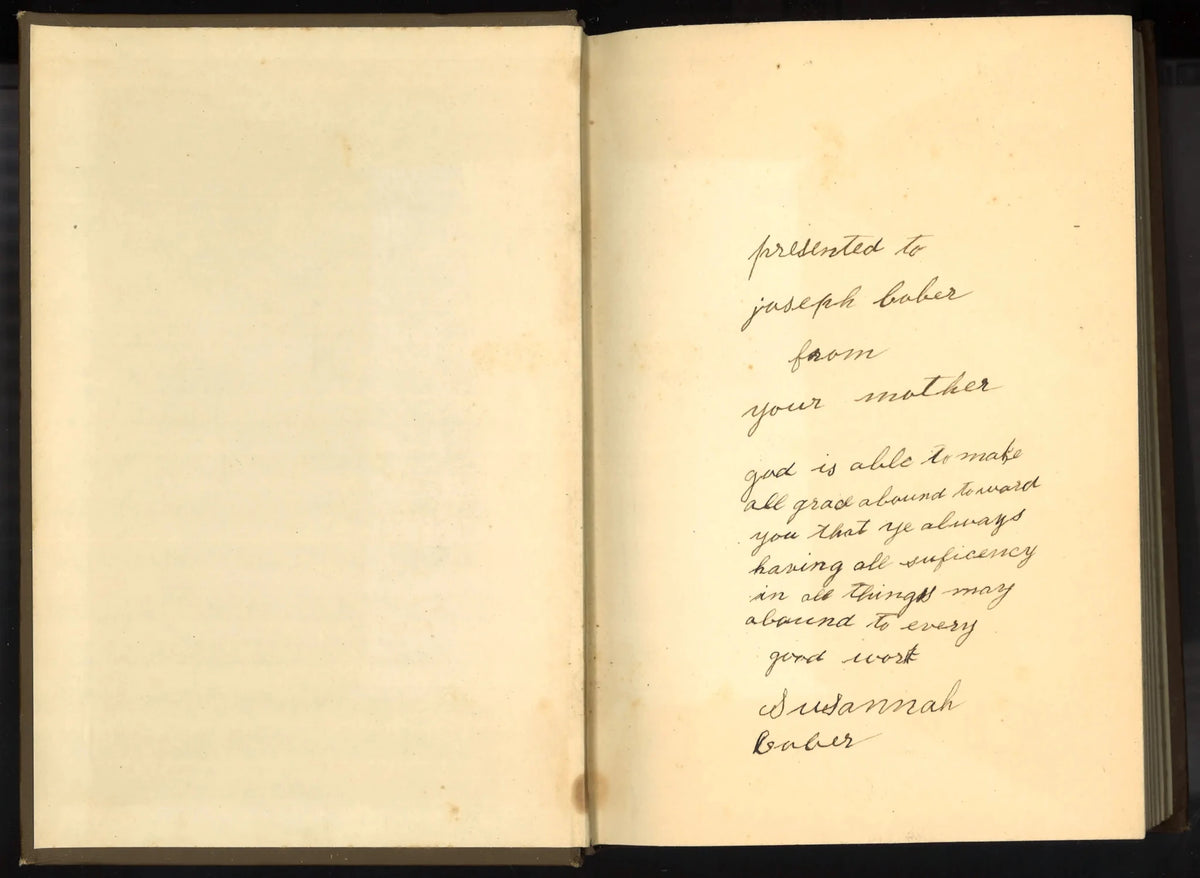 presented to
joseph bober
from
your mother
god is able to make
all grace abound toward
you that ye always
having all suficency
in all things may
abound to every
good work
Susannah
bober